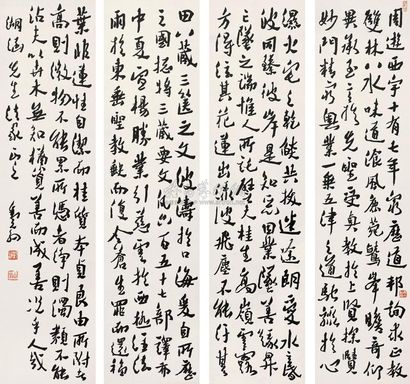 周遊西宇十有七年窮歷道邦詢求正教
雙林八水味道湌風鹿菀鷲峯瞻奇仰
異承至言於先聖受真教於上賢探賾
妙門精窮奧業一乘五律之道馳驟於心
濕火宅之乾燄共拔迷途朗愛水之昏
波同臻彼岸是知惡因業墜善緣昇
墜之端惟人所託譬夫桂生高嶺雲露
方得泫其花蓮出淥波飛塵不能污其
田八藏三篋之文波濤於口海爰自所歷
之國總將三藏要文凡六百五十七部譯布
中夏宣揚勝業引慈雲於西極注法
雨於東垂聖教缺而復全蒼生罪而還福
葉非蓮性自潔而桂質本貞良由所附者
高則微物不能累所憑者淨則濁類不能
沾夫以卉木無知猶資善而成善況乎人倫
先生法家正之